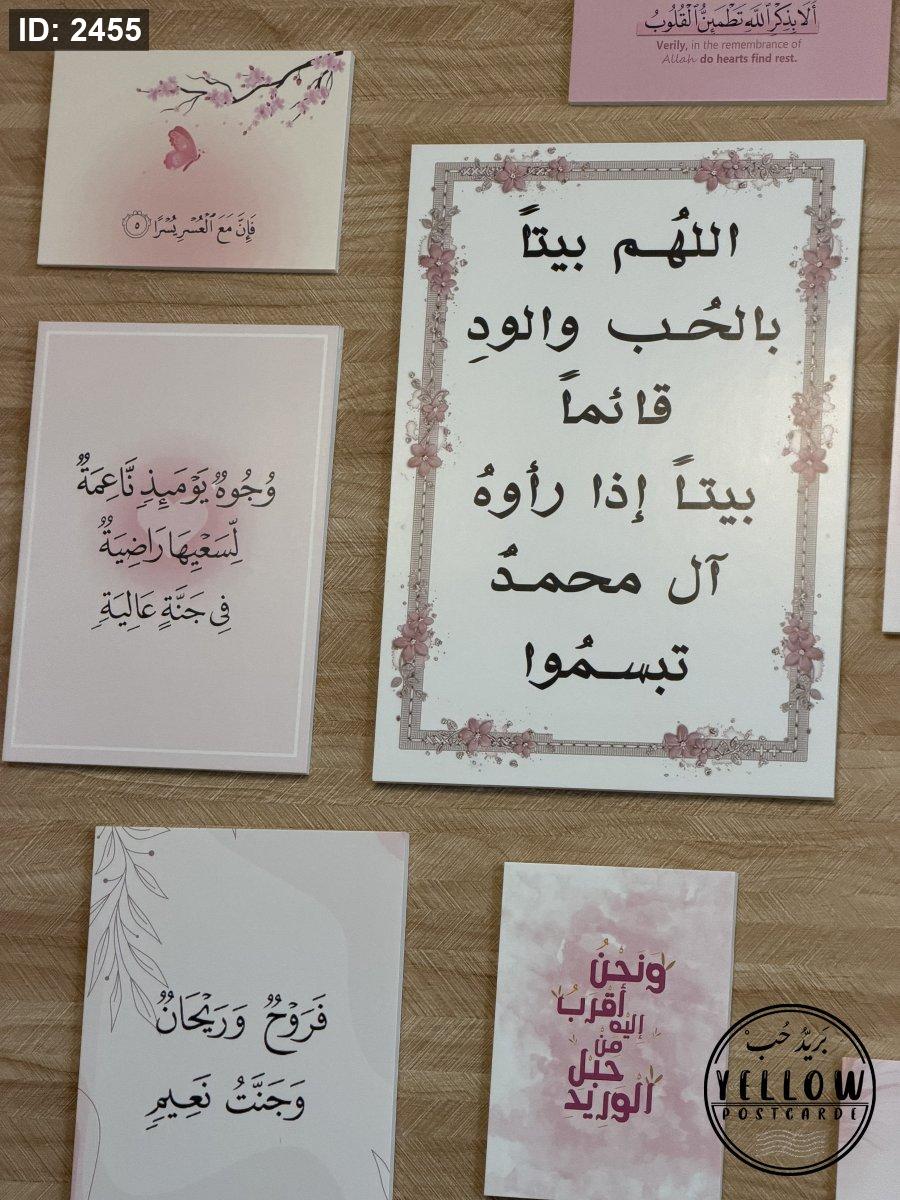 ID: 2455
أَلَا بِذِكْرِ ٱللَّهِ تَطْمَئِنُّ ٱلْقُلُوبُ
Verily, in the remembrance of
Allah do hearts find rest.
فَإِنَّ مَعَ ٱلْعُسْرِ يُسْرًا ٥
اللهُم بيتاً
بالحُب والودِ
قائماً
بيتاً إذا رأوهُ
آل محمدٌ
تبسمُوا
وُجُوهٌ يَوْمَئِذٍ نَّاعِمَةٌ
لِّسَعْيِهَا رَاضِيَةٌ
فِي جَنَّةٍ عَالِيَةٍ
فَرَوْحٌ وَرَيْحَانٌ
وَجَنَّتُ نَعِيمٍ
ونَحْنُ
أَقْرَبُ
إليه
مِنْ
حَبْلِ
الوَرِيدِ
بَرِيدُ حُبْ
YELLOW
POSTCARDE